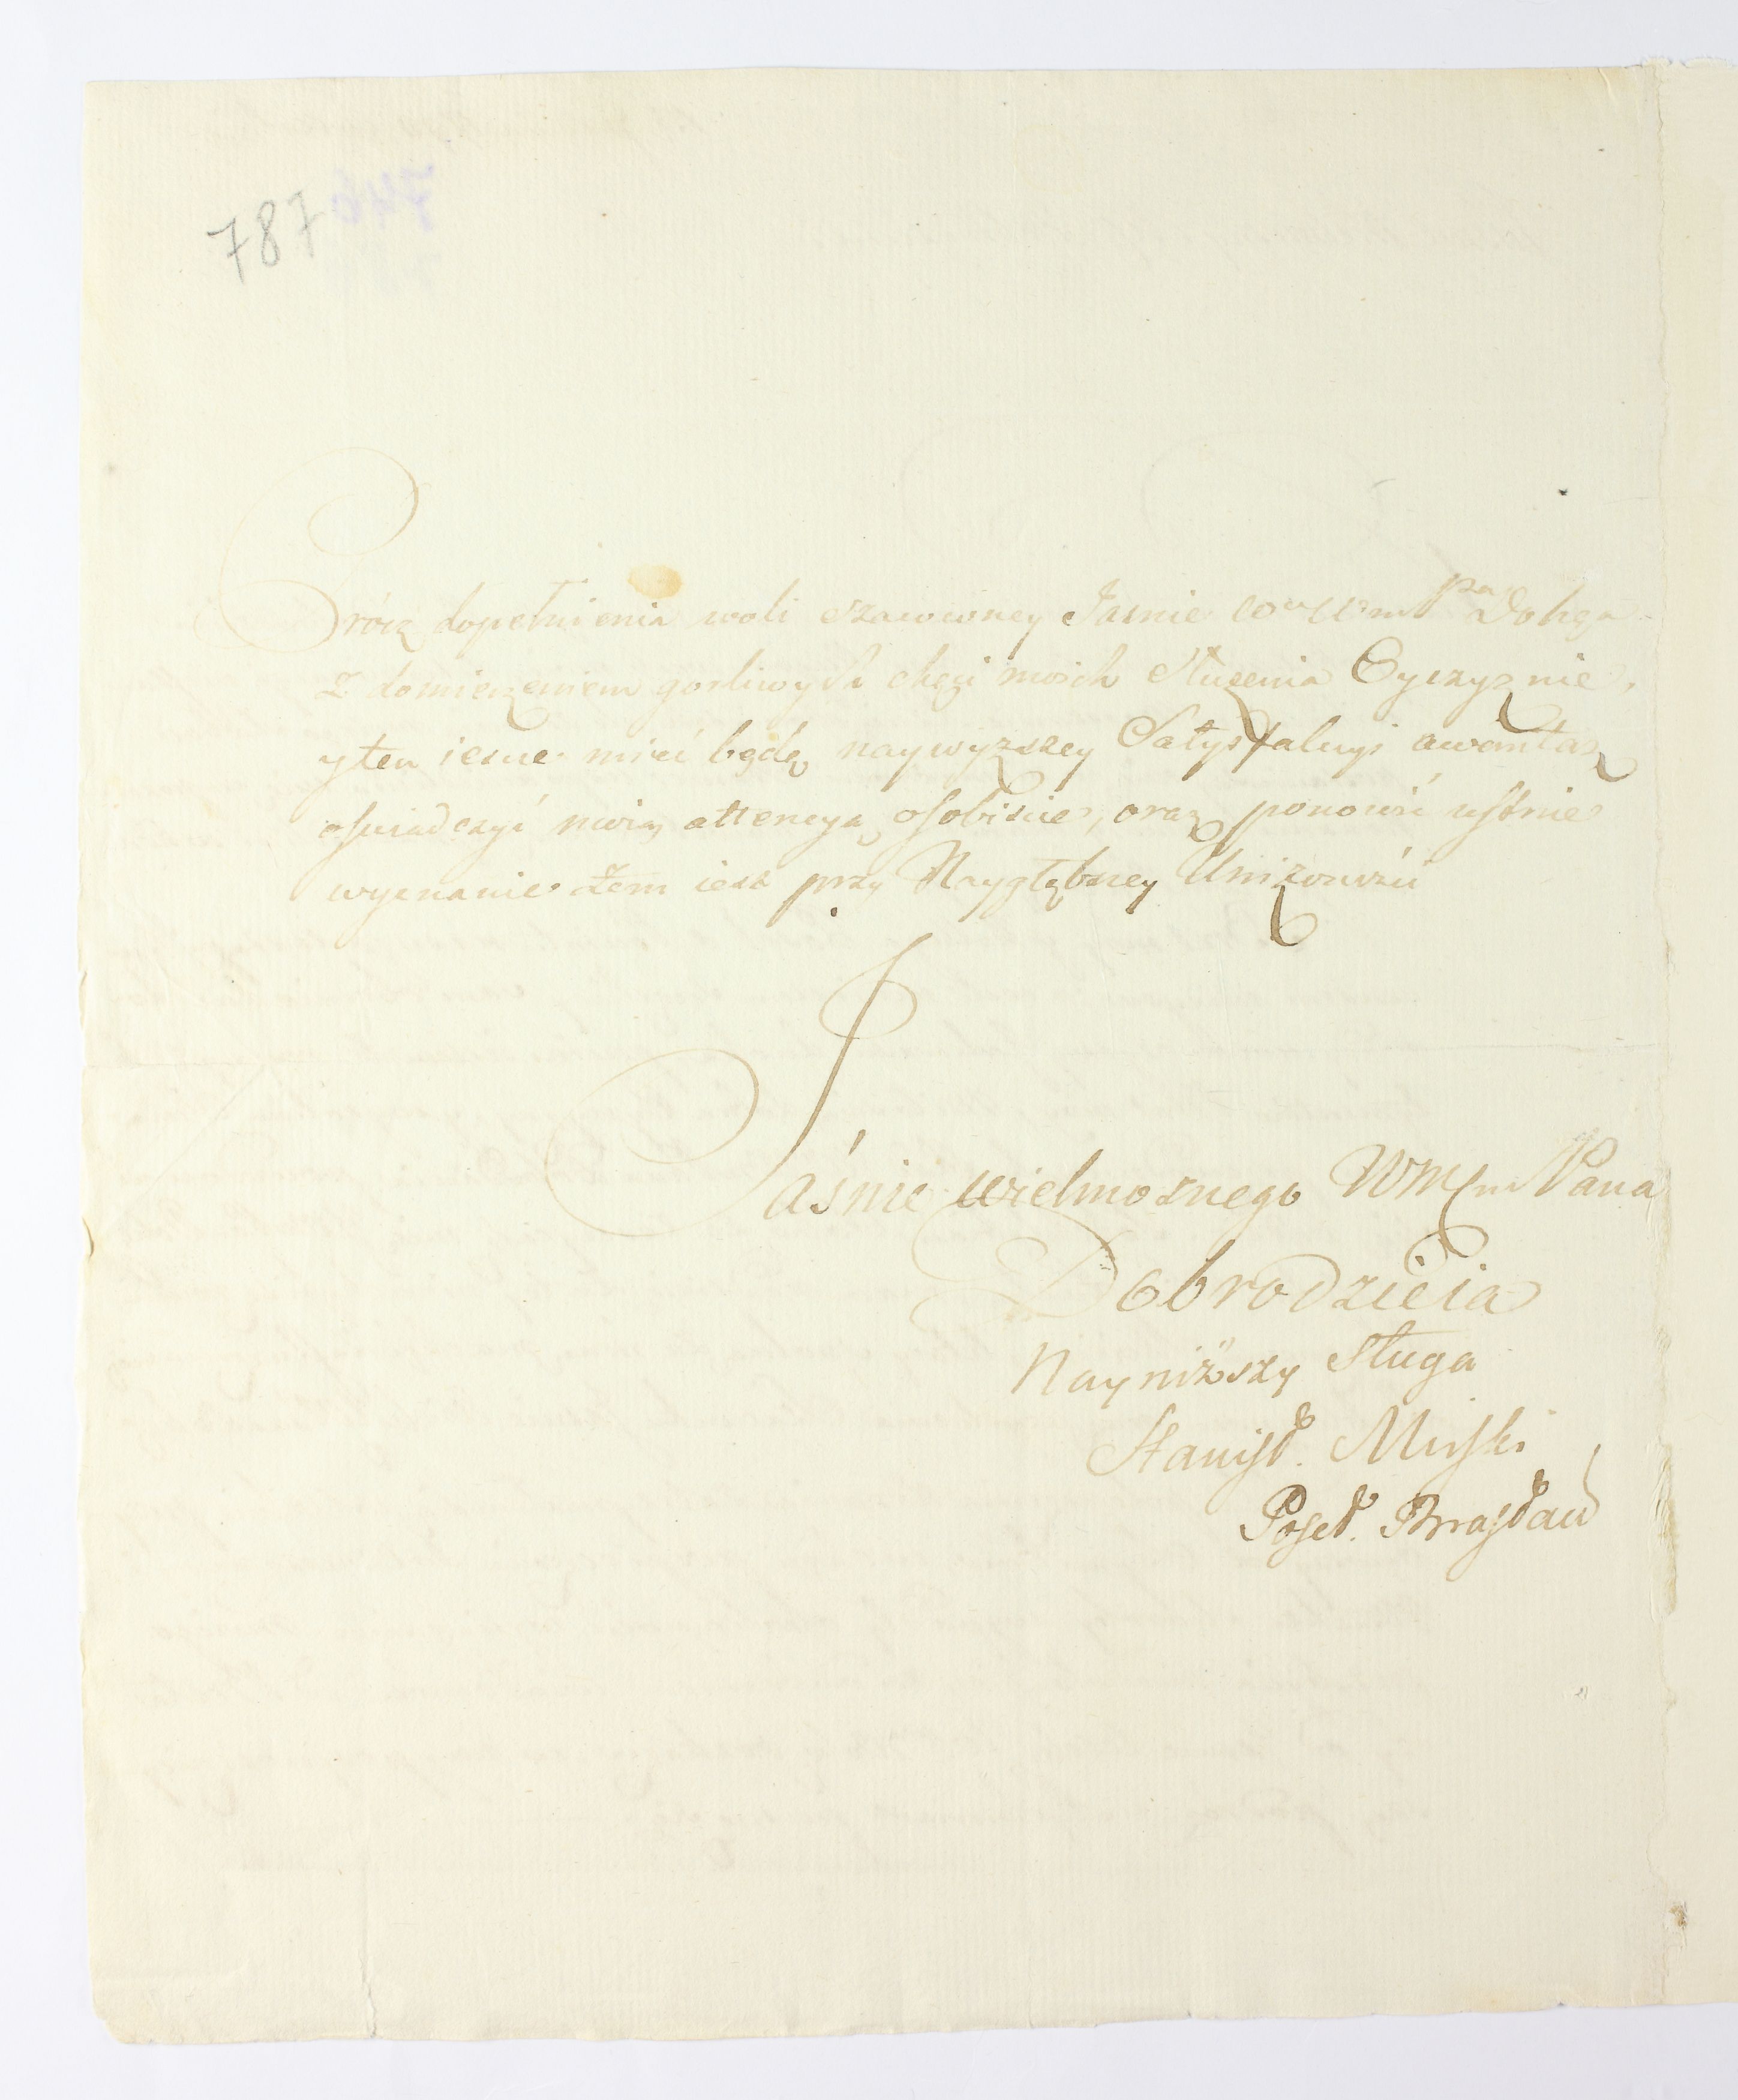 787
Prócz dopełnienia woli szanowney Jasnie Pa Dobga
z domierzeniem gorliwych chęci moich służenia Oyczyznie,
y ten ieszcze mieć będę naywyższey Satysfakcyi awantaż
oświadczyć moią attencyą osobiscie, oraz ponowić ustnie
wyznanie żem iest przy Naygłębszey Uniżoności
Jaśnie wielmożnego WMm Pana
Dobrodzieia
Nayniższy Sługa
Stanisł. Mirski
Poseł. Brasław